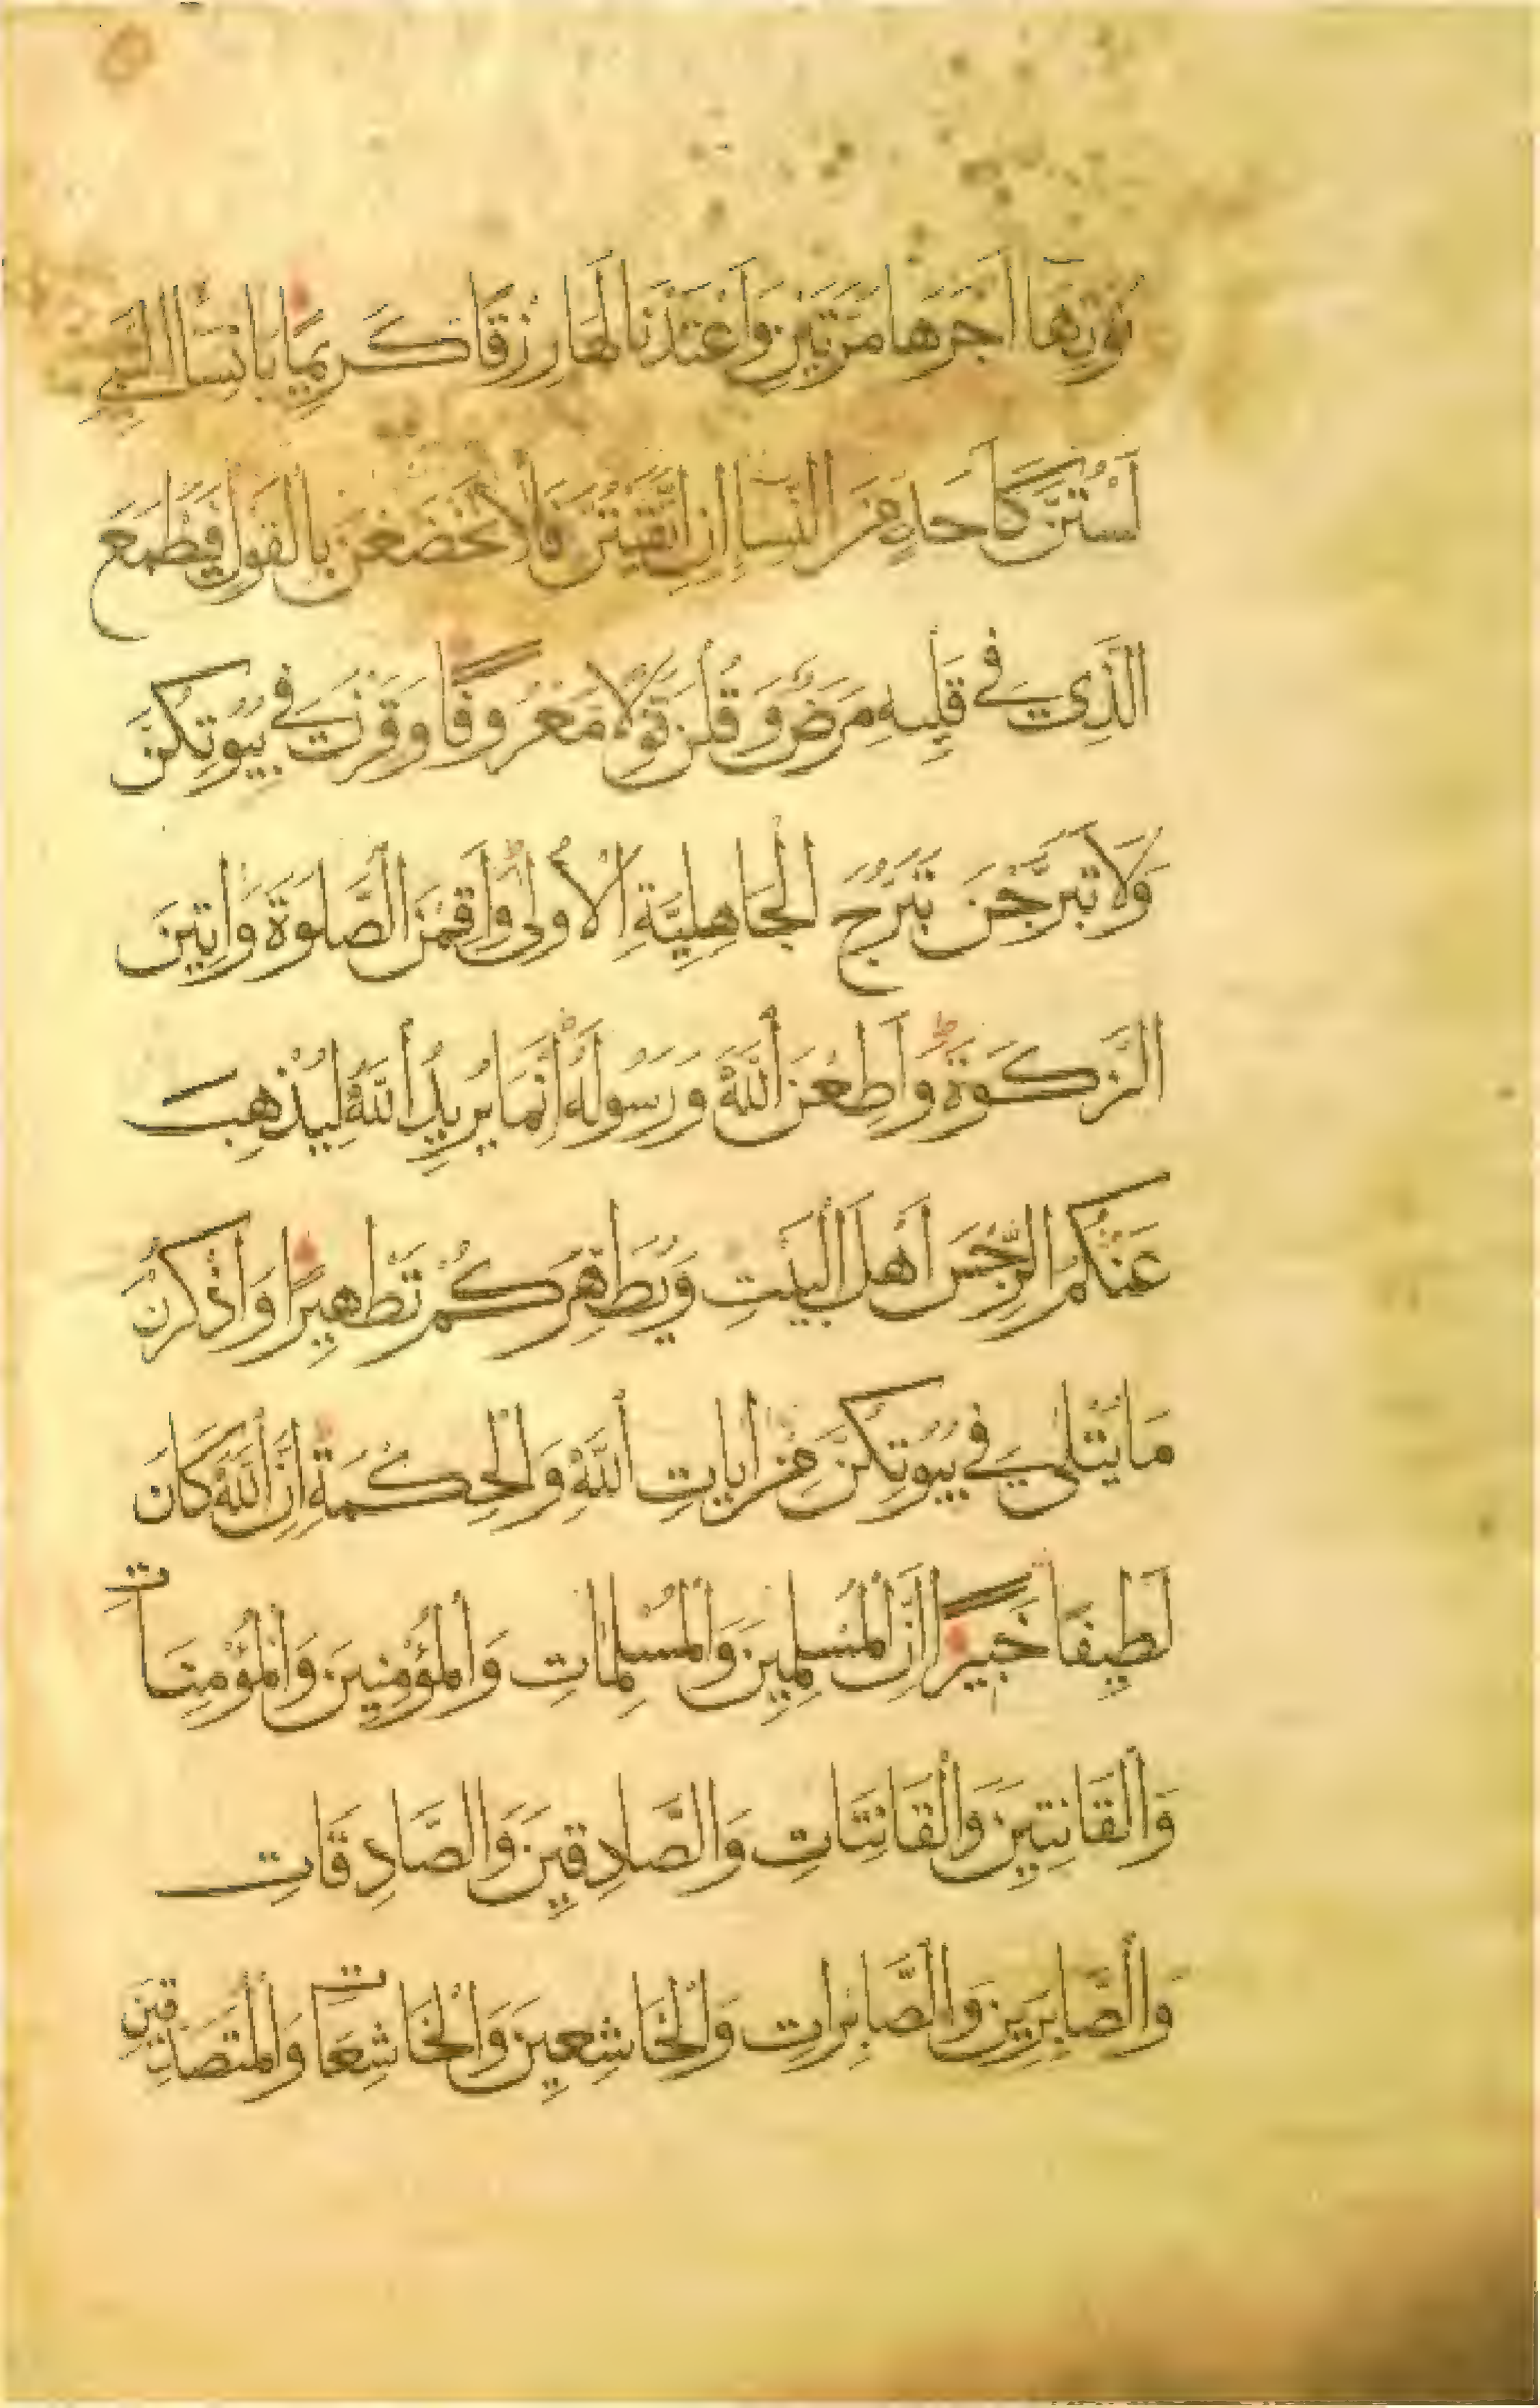 نُؤْتِهَا أَجْرَهَا مَرَّتَيْنِ وَأَعْتَدْنَا لَهَا رِزْقًا كَرِيمًا يَا نِسَاءَ النَّبِيِّ
لَسْتُنَّ كَأَحَدٍ مِنَ النِّسَاءِ إِنِ اتَّقَيْتُنَّ فَلَا تَخْضَعْنَ بِالْقَوْلِ فَيَطْمَعَ
الَّذِي فِي قَلْبِهِ مَرَضٌ وَقُلْنَ قَوْلًا مَعْرُوفًا وَقَرْنَ فِي بُيُوتِكُنَّ
وَلَا تَبَرَّجْنَ تَبَرُّجَ الْجَاهِلِيَّةِ الْأُولَى وَأَقِمْنَ الصَّلَوةَ وَآتِينَ
الزَّكَوةَ وَأَطِعْنَ اللَّهَ وَرَسُولَهُ إِنَّمَا يُرِيدُ اللَّهُ لِيُذْهِبَ
عَنْكُمُ الرِّجْسَ أَهْلَ الْبَيْتِ وَيُطَهِّرَكُمْ تَطْهِيرًا وَاذْكُرْنَ
مَا يُتْلَى فِي بُيُوتِكُنَّ مِنْ آيَاتِ اللَّهِ وَالْحِكْمَةِ إِنَّ اللَّهَ كَانَ
لَطِيفًا خَبِيرًا إِنَّ الْمُسْلِمِينَ وَالْمُسْلِمَاتِ وَالْمُؤْمِنِينَ وَالْمُؤْمِنَاتِ
وَالْقَانِتِينَ وَالْقَانِتَاتِ وَالصَّادِقِينَ وَالصَّادِقَاتِ
وَالصَّابِرِينَ وَالصَّابِرَاتِ وَالْخَاشِعِينَ وَالْخَاشِعَاتِ وَالْمُتَصَدِّقِينَ